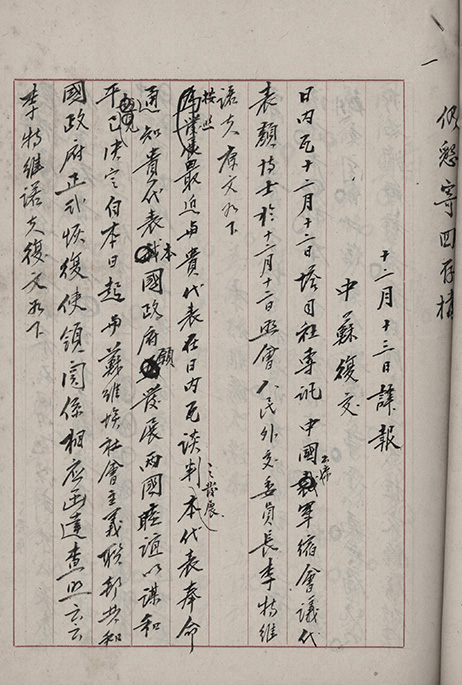 仍懇寄回存檔
一
十二月十三日譯報
中蘇復交
日内瓦十二月十二日塔司社專訊中國出席軍縮會議代
表顏博士於十二月十二日照會人民外交委員長李特維
諾夫原文如下
按照最近與貴代表在日内瓦談判之發展本代表奉命
通知貴代表本國政府願發展兩國睦誼以謀和
平已決定自本日起與蘇維埃社會主義聯邦共和
國政府正式恢復使領關係相應函達查照云云
李特維諾夫復文如下